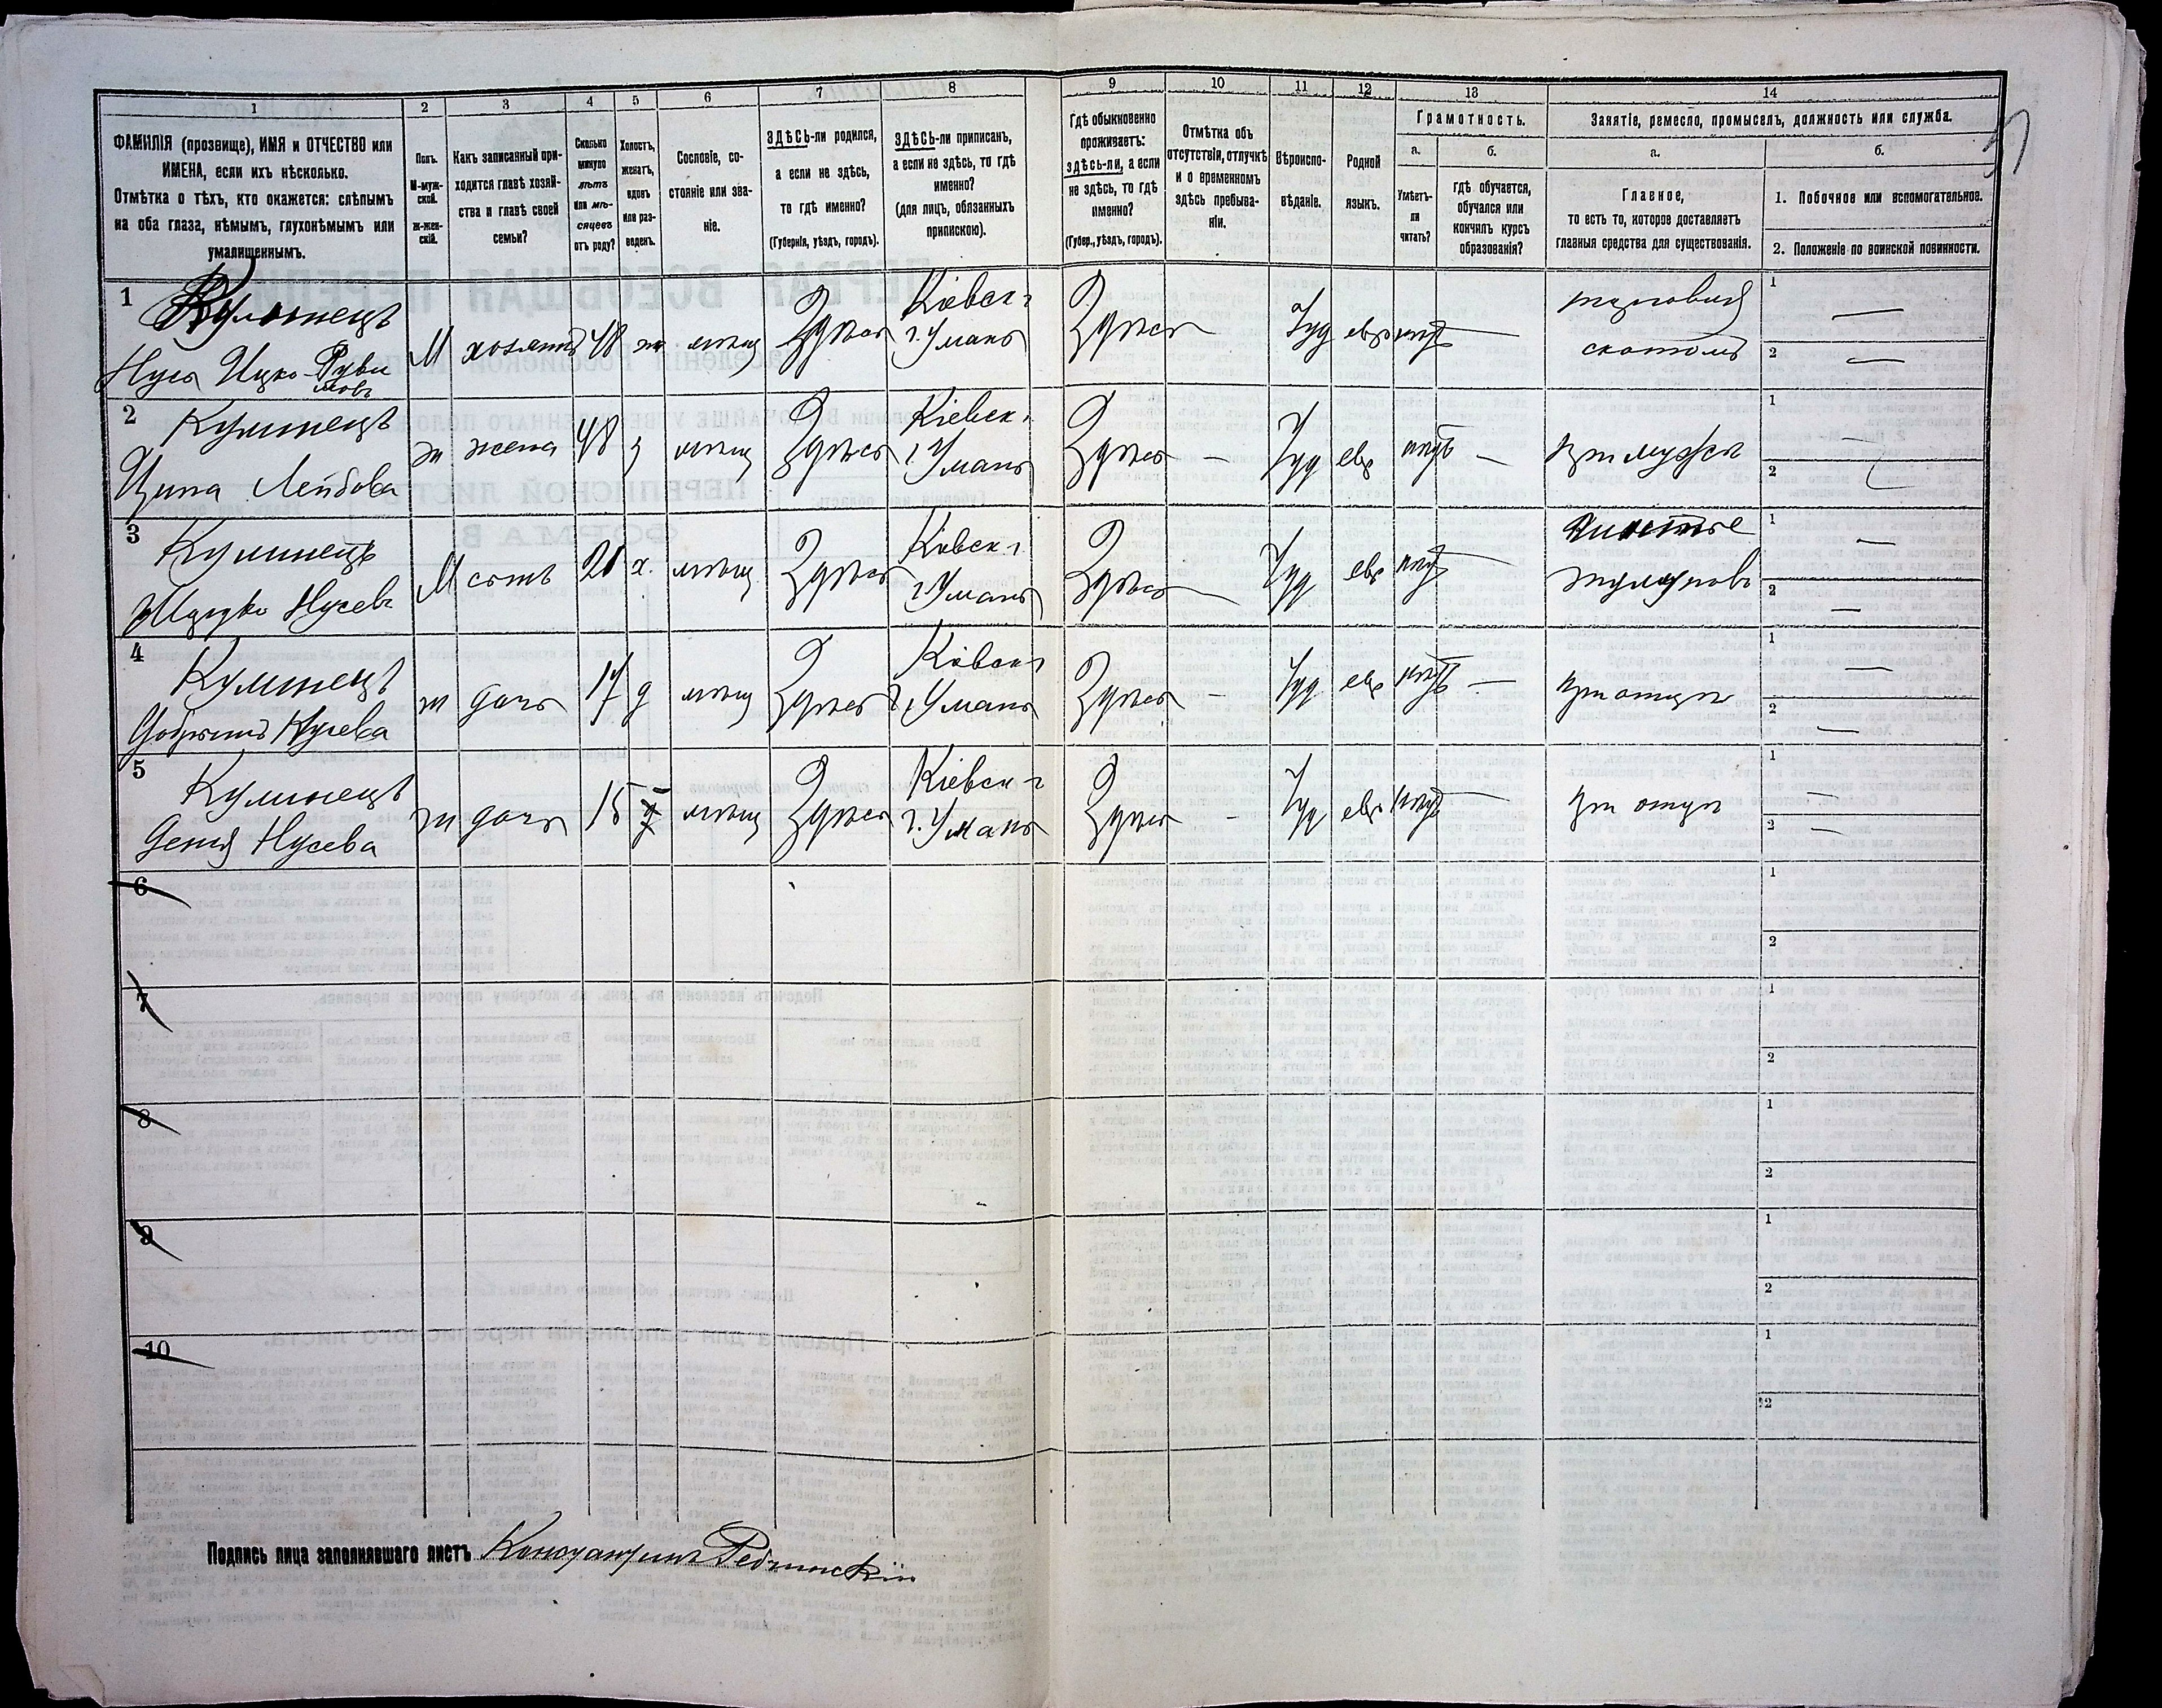 1 2 3 4 5 6 7 8 9 10 11 12 13 14
ФАМИЛІЯ (прозвище), ИМЯ и ОТЧЕСТВО или
ИМЕНА, если ихъ нѣсколько.
Отмѣтка о тѣхъ, кто окажется: слѣпымъ
на оба глаза, нѣмымъ, глухонѣмымъ или
умалишеннымъ.
Полъ.
М-муж-
ской.
ж-жен-
скій.
Какъ записанный при-
ходится главѣ хозяй-
ства и главѣ своей
семьи?
Сколько
минуло
лѣтъ
или мѣ-
сяцевъ
отъ роду?
Холостъ,
женатъ,
вдовъ
или раз-
веденъ.
Сословіе, со-
стояніе или зва-
ніе.
ЗДѢСЬ-ли родился,
а если не здѣсь,
то гдѣ именно?
(Губернія, уѣздъ, городъ).
ЗДѢСЬ-ли приписанъ,
а если не здѣсь, то гдѣ
именно?
(для лицъ, обязанныхъ
припискою).
Гдѣ обыкновенно
проживаетъ:
здѣсь-ли, а если
не здѣсь, то гдѣ
именно?
(Губер., уѣздъ, городъ).
Отмѣтка объ
отсутствіи, отлучкѣ
и о временномъ
здѣсь пребыва-
ніи.
Вѣроиспо-
вѣданіе.
Родной
языкъ.
Грамотность.
а.
Умѣетъ-
ли
читать?
б.
гдѣ обучается,
обучался или
кончилъ курсъ
образованія?
Занятіе, ремесло, промыселъ, должность или служба.
а.
Главное,
то есть то, которое доставляетъ
главныя средства для существованія.
б.
1. Побочное или вспомогательное.
2. Положеніе по воинской повинности.
1 Кулинецъ
Нусь Ицко-Руви
мовъ
М хозяинъ 48 ж мѣщ Здѣсь Кіевск г
г. Умань Здѣсь — Іуд евр нѣтъ — торговля
скотомъ
1 —
2 —
2 Кулинецъ
Ципа Лейбова
ж жена 48 з мѣщ Здѣсь Кіевск г
г. Умань Здѣсь — Іуд евр нѣтъ — при мужѣ
1 —
2
3 Кулинецъ
Нусевъ
М сынъ х. мѣщ Здѣсь Кіевск г
г. Умань Здѣсь — Іуд евр нѣтъ —
1 —
2 —
4 Кулинецъ
Нусева
ж дочь 17 д мѣщ Здѣсь Кіевск г
г. Умань Здѣсь — Іуд евр нѣтъ — при отцѣ
1 —
2 —
5 Кулинецъ
Нусева
ж дочь 15 мѣщ Здѣсь Кіевск г
г. Умань Здѣсь — Іуд евр нѣтъ — при отцѣ
1 —
2 —
6
1
2
7
1
2
8
1
2
9
1
2
10
1
2
Подпись лица заполнявшаго листъ Константинъ